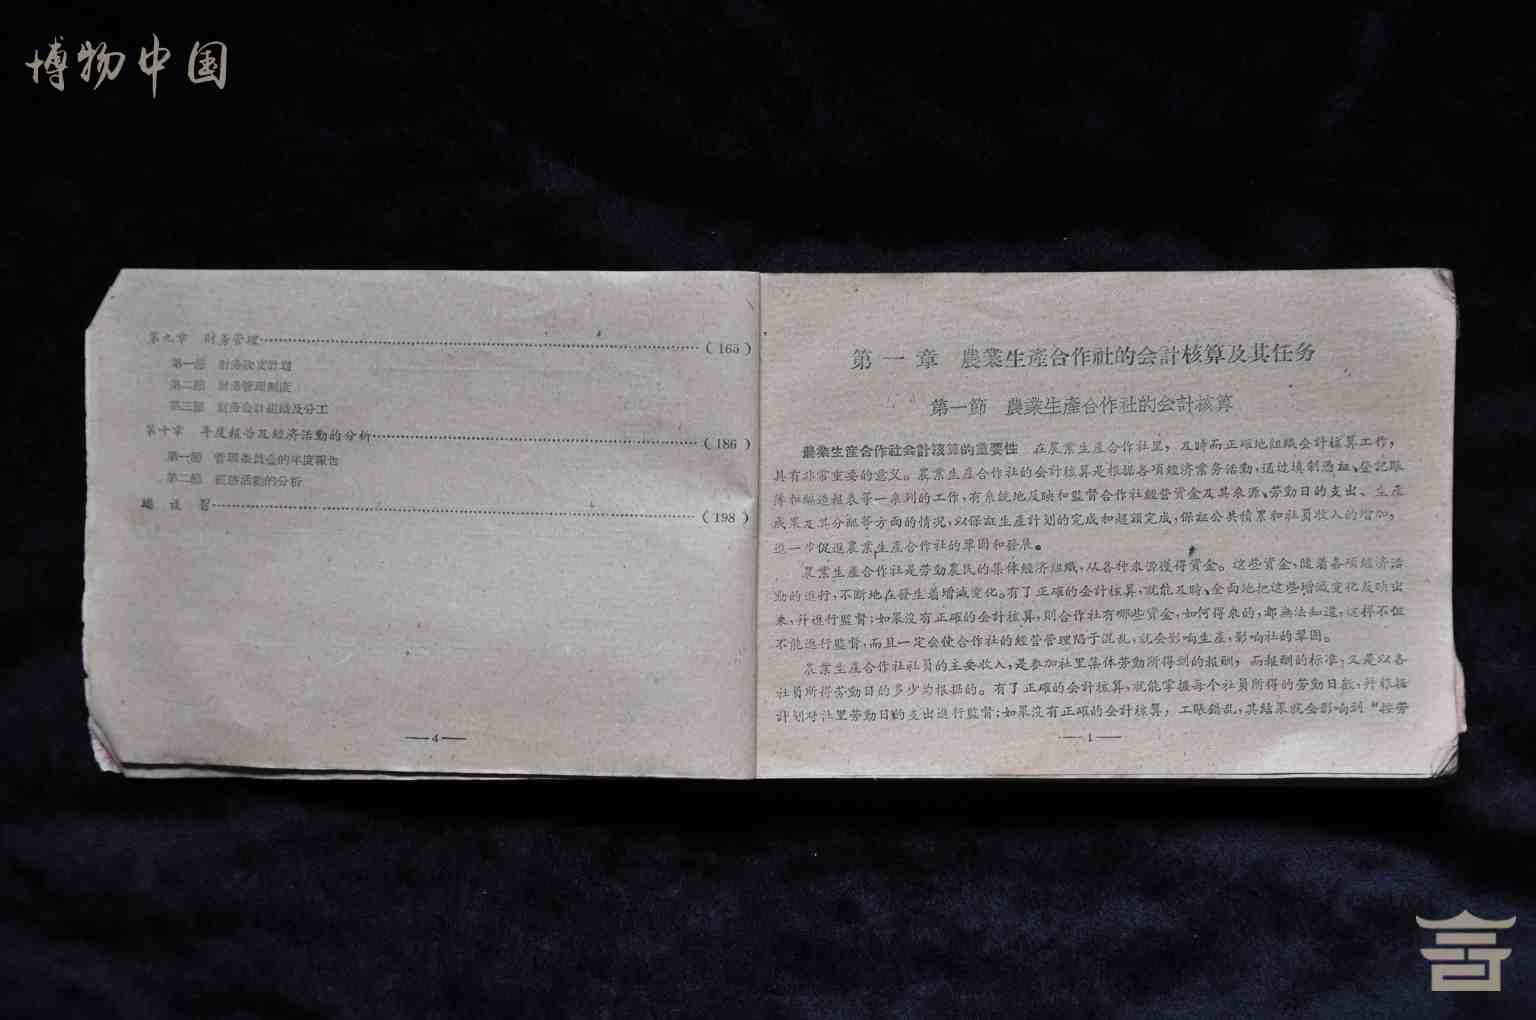 博物中国
第九章 財务管理……(165)
第一節 財务收支計划
第二節 財务管理制度
第三節 財务会計組織及分工
第十章 年度报告及經济活動的分析……(186)
第一節 管理委員会的年度報告
第二節 經济活動的分析
……(198)
—4—
第一章 農業生產合作社的会計核算及其任务
第一節 農業生產合作社的会計核算
農業生産合作社会計核算的重要性 在農業生產合作社里，及時而正確地組織会計核算工作，
具有非常重要的意义。農業生產合作社的会計核算是根据各項經济業务活動，通过填制憑証、登記賬
簿和編造報表等一系列的工作，有系統地反映和監督合作社經营資金及其來源、劳動日的支出、生產
成果及其分配等方面的情况，以保証生產計划的完成和超額完成，保証公共積累和社員收入的增加，
進一步促進農業生產合作社的鞏固和發展。
農業生產合作社是劳動農民的集体經济組織，从各种來源獲得資金。這些資金，隨着各項經济活
動的進行，不断地在發生着增減变化。有了正確的会計核算，就能及時、全面地把這些增減变化反映出
來，并進行監督；如果沒有正確的会計核算，則合作社有哪些資金，如何得來的，都無法知道，这样不但
不能進行監督，而且一定会使合作社的經营管理陷于混乱，就会影响生產，影响社的鞏固。
農業生產合作社社員的主要收入，是参加社里集体劳動所得到的报酬，而报酬的标准，又是以各
社員所得劳動日的多少为根据的。有了正確的会計核算，就能掌握每个社員所得的劳動日數，并根据
計划对社里劳動日的支出進行監督；如果沒有正確的会計核算，工賬錯乱，其結果就会影响到“按劳
—1—